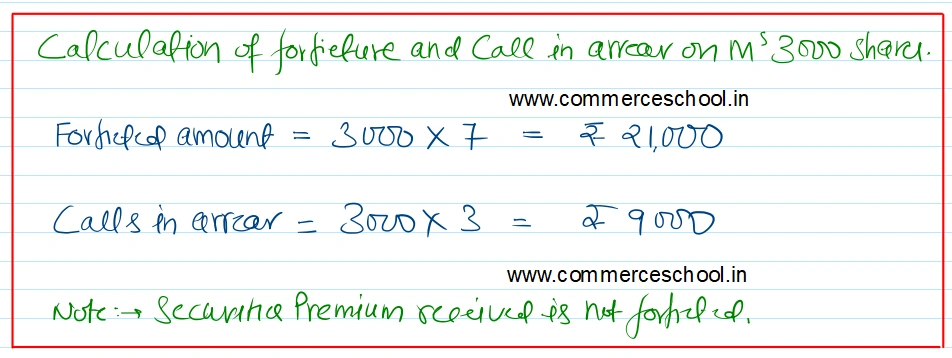 Calculation of forfieture and Call in arrear on Ms 3000 shares.
www.commerceschool.in
Forfieted amount = 3000 × 7 = ₹ 21,000
Calls in arrear = 3000 × 3 = ₹ 9000
www.commerceschool.in
Note:→ Securities Premium received is not forfieted.